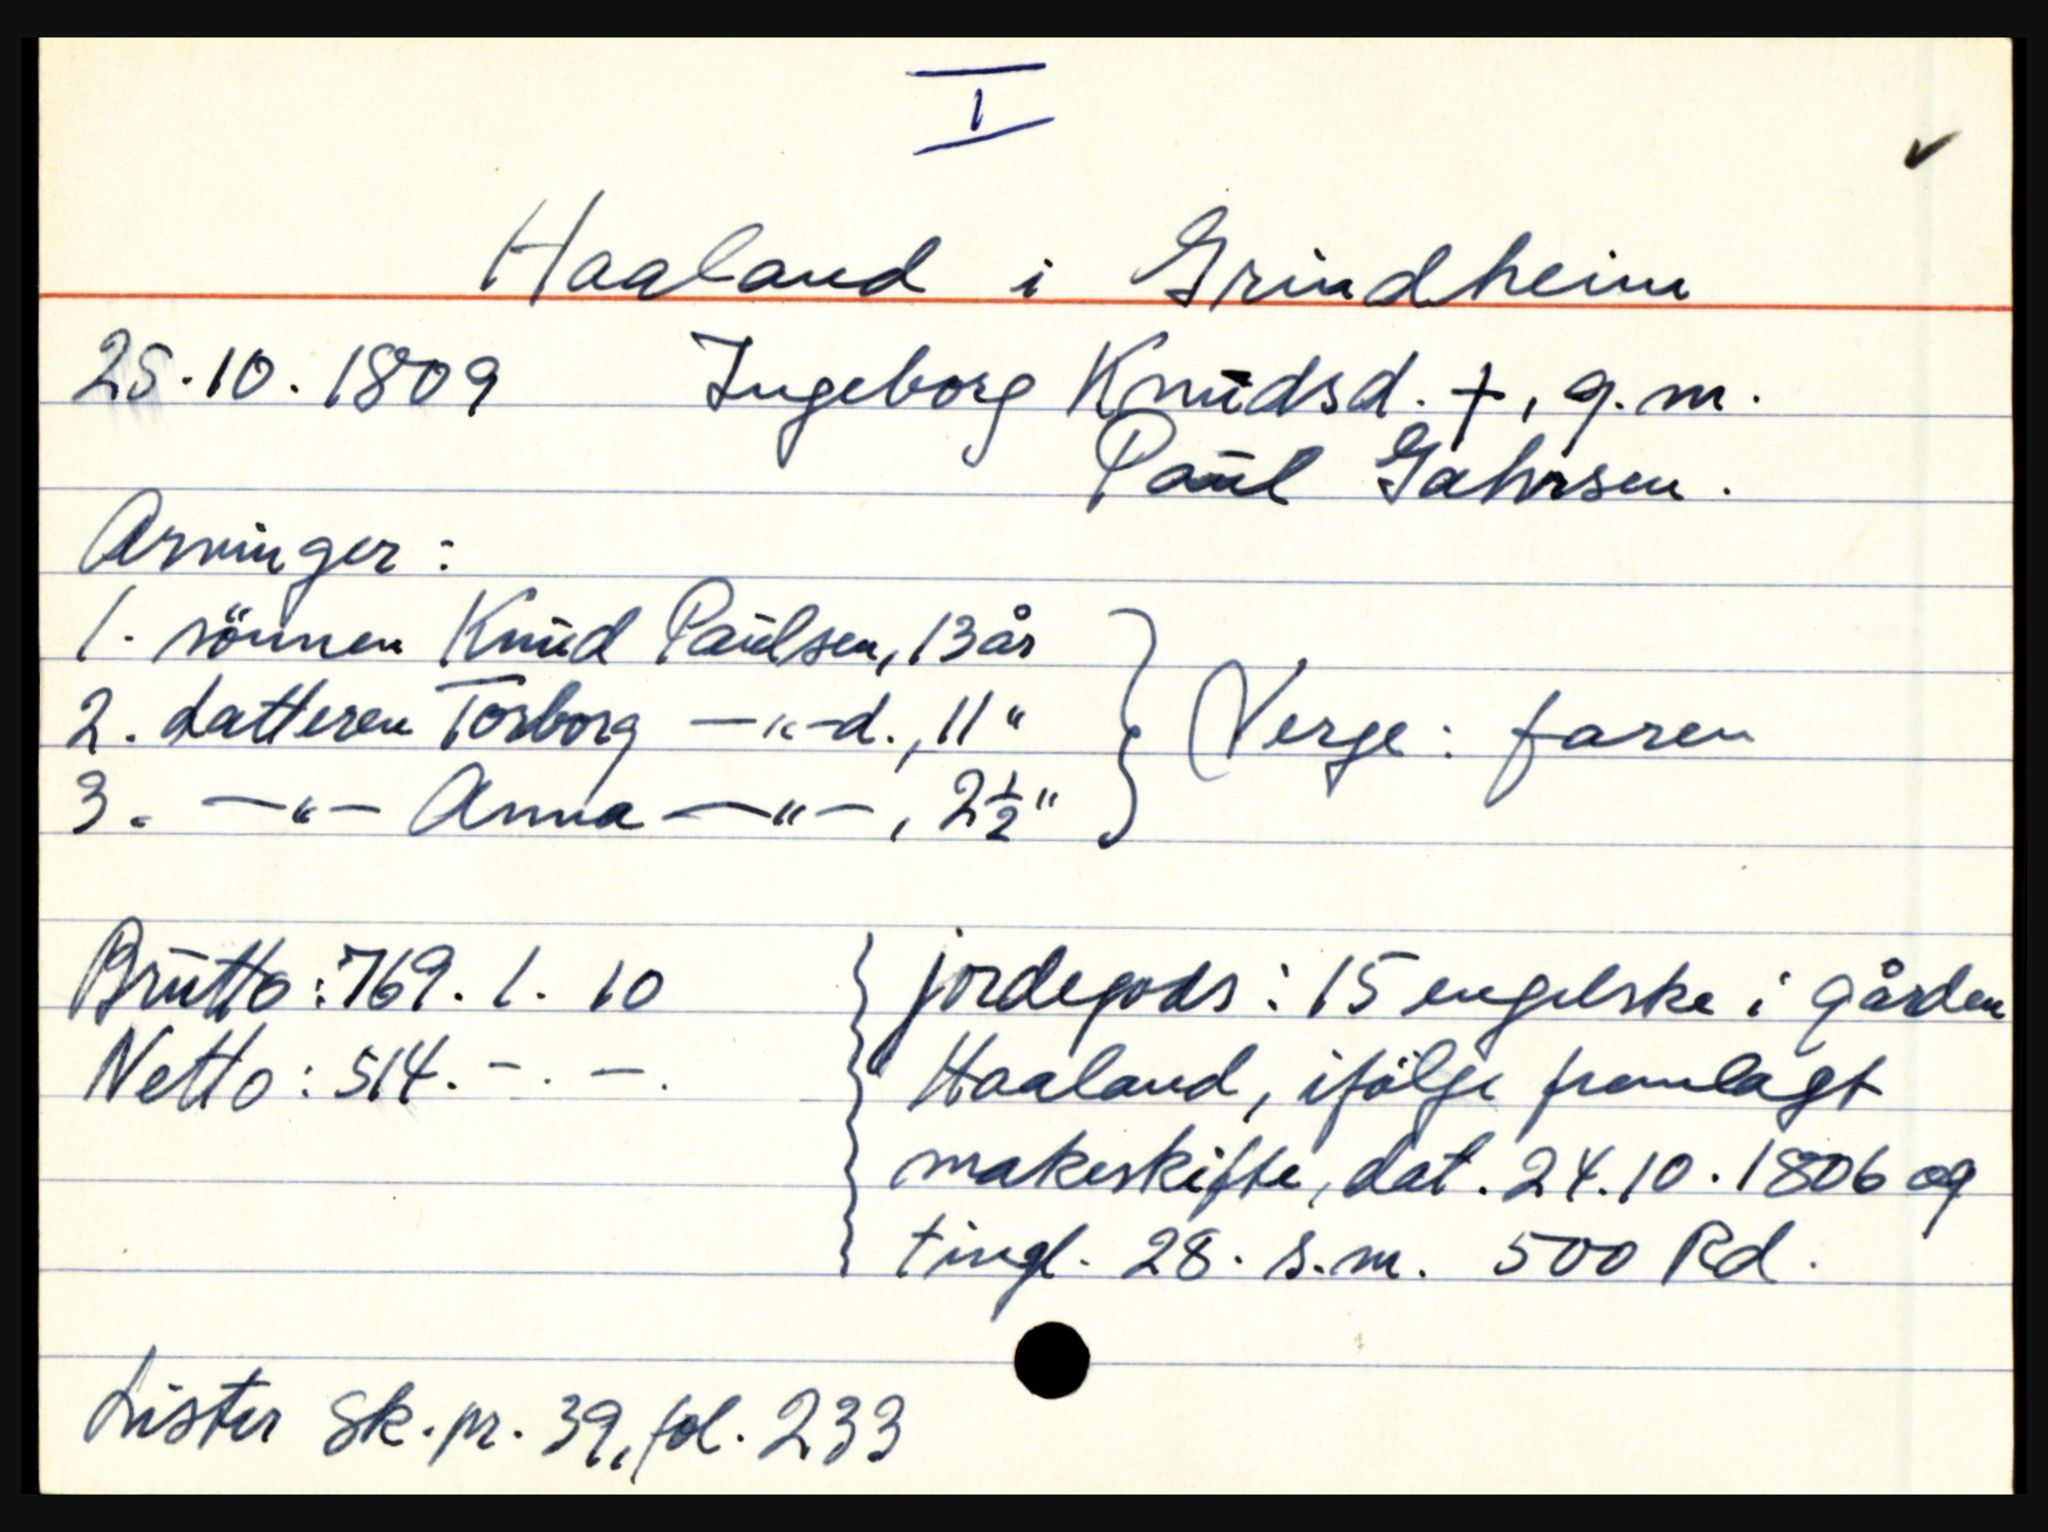 I
Haaland i Grindheim
25.10.1809 Ingeborg Knudsd. †, g.m.
Paul Gahrsen.
Arvinger:
1. sönnen Knud Paulsen, 13 år
2. datteren Torborg —"—d., 11 "
3. —"— Anna —"—, 2½ "
Verge: faren
Brutto: 769. 1. 10
Netto: 514. -. -.
jordegods: 15 engelske i gården
Haaland, ifölge fremlagt
makeskifte, dat. 24.10.1806 og
tingl. 28. s.m. 500 Rd.
Lister sk.pr. 39, fol. 233